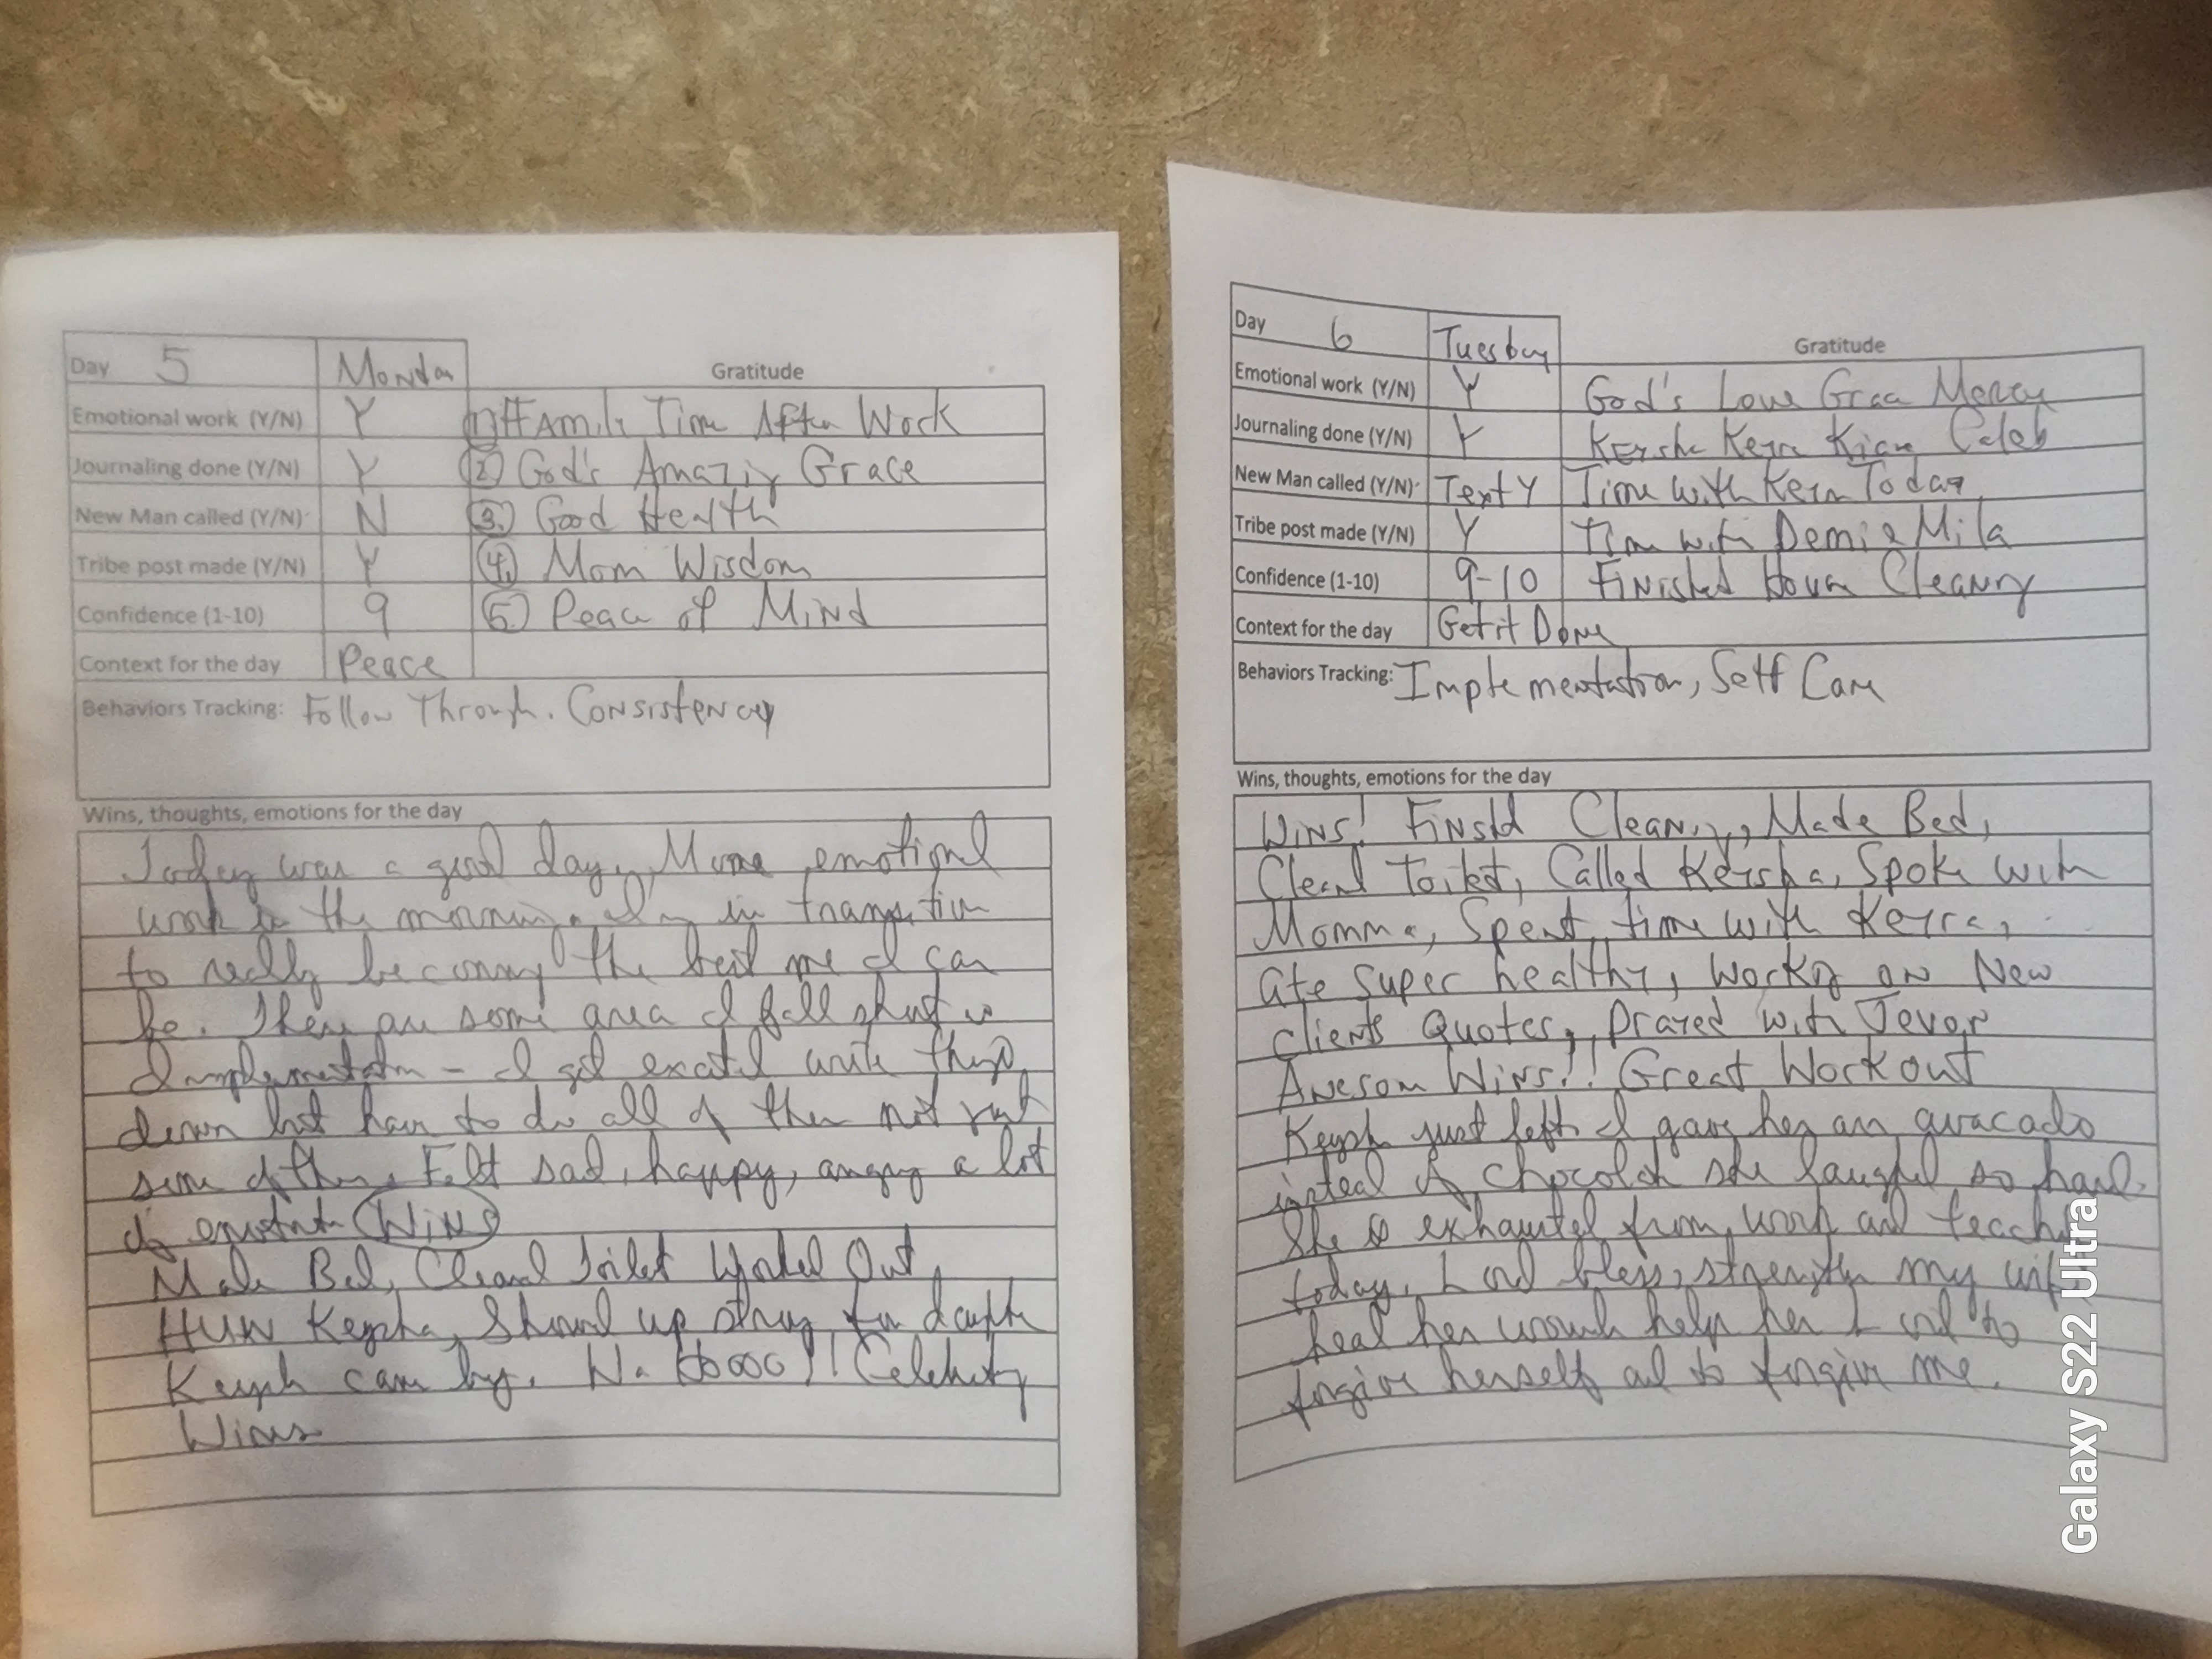 Day 5 Monday
Gratitude
Emotional work (Y/N) Y 1) Family Time After Work
Journaling done (Y/N) Y 2) God's Amazing Grace
New Man called (Y/N) N 3. Good Health
Tribe post made (Y/N) Y 4. Mom Wisdom
Confidence (1-10) 9 5. Peace of Mind
Context for the day Peace
Behaviors Tracking: Follow Through. Consistency
Wins, thoughts, emotions for the day
Today was a good day. emotional
work in the morning. I'm in transition
to really becoming the best me I can
be. There are some area I fall short is
Implementation - I get excited write things
down but have to do all of them not just
some of them. Felt sad, happy, angry a lot
of Wins
Made Bed, Cleaned Toilet Worked Out,
Keysha, Showed up strong for
Keysh came by. Celebrity
Wins
Day 6 Tuesday
Gratitude
Emotional work (Y/N) Y God's Love Grace Mercy
Journaling done (Y/N) Y Keysha Keyra Caleb
New Man called (Y/N) Text Y Time with Today
Tribe post made (Y/N) Y Time with Demi & Mila
Confidence (1-10) 9-10 Finished House Cleaning
Context for the day Get it Done
Behaviors Tracking: Implementation, Self Care
Wins, thoughts, emotions for the day
Wins! Cleaning, Made Bed,
Toilet, Called Keysha, Spoke with
Momma, Spent time with Keyra,
ate super healthy, Working on New
clients Quotes, prayed with
Awesom Wins!! Great Workout
Keysh just left. I gave her an avacado
instead of chocolate she laughed so hard.
She is exhausted from work and
today. Lord bless, strengthen my wife
heal her help her Lord to
forgive herself and to forgive me.
Galaxy S22 Ultra